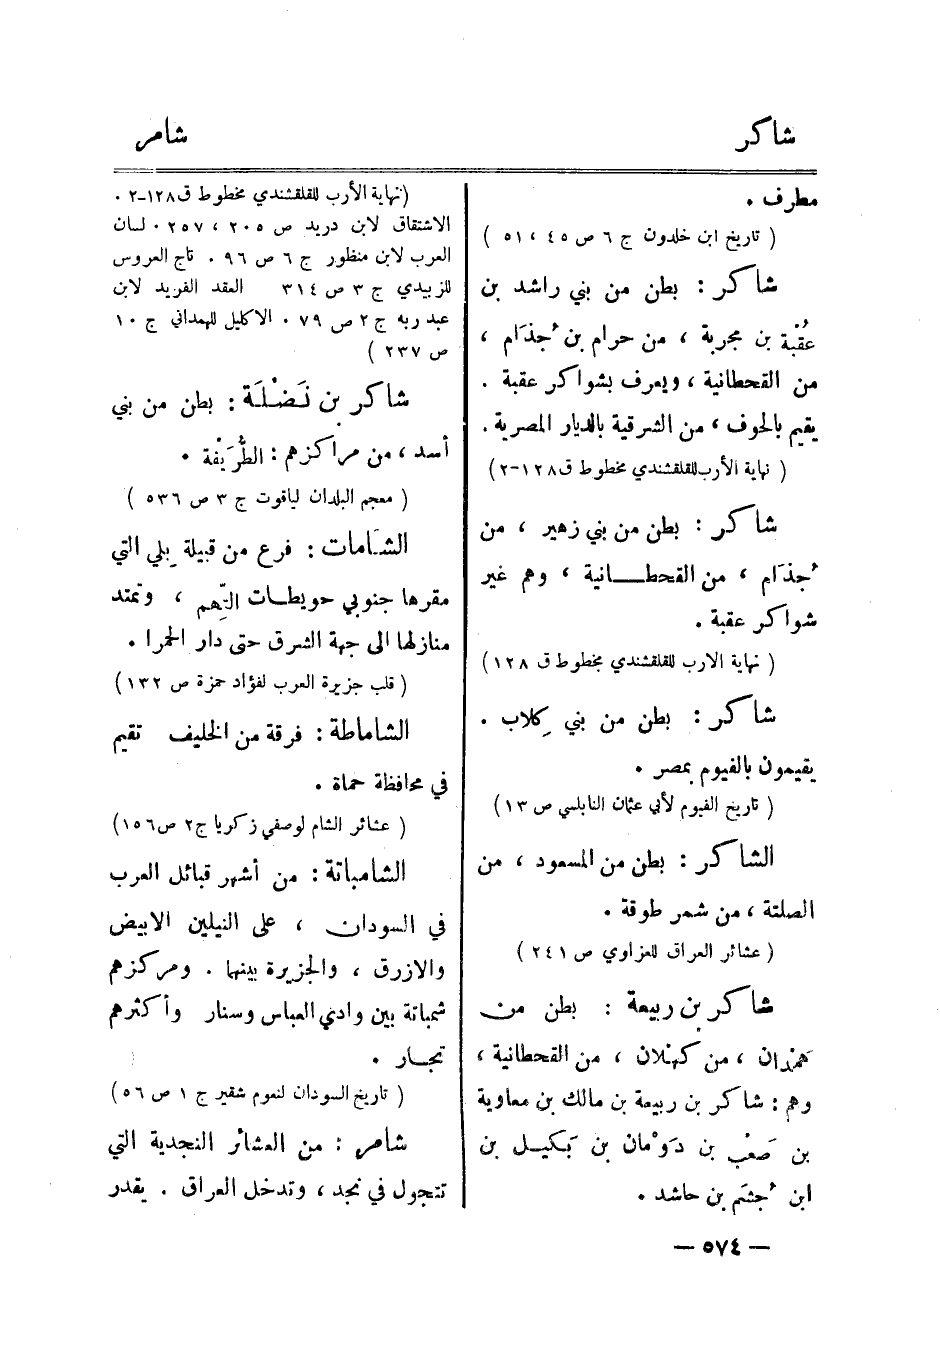 شاكر
شامر
مطرف .
( تاريخ ابن خلدون ج ٦ ص ٤٥ ، ٥١ )
شاكر : بطن من بني راشد بن
عُقْبة بن مجربة ، من حرام بن جُذَام ،
من القحطانية ، ويعرف بشواكر عقبة .
يقيم بالحوف ، من الشرقية بالديار المصرية .
( نهاية الأرب للقلقشندي مخطوط ق ١٢٨-٢ )
شاكر : بطن من بني زهير ، من
جُذَام ، من القحطـــانية ، وهم غير
شواكر عقبة .
( نهاية الارب للقلقشندي مخطوط ق ١٢٨ )
شاكر : بطن من بني كِلاب .
يقيمون بالفيوم بمصر .
( تاريخ الفيوم لأبي عثمان النابلسي ص ١٣ )
الشاكر : بطن من المسعود ، من
الصلتة ، من شمر طوقة .
( عشائر العراق للعزاوي ص ٢٤١ )
شاكر بن ربيعة : بطن من
هَمْدان ، من كهْلان ، من القحطانية ،
وهم : شاكر بن ربيعة بن مالك بن معاوية
بن صَعْب بن دَوْمان بن بَكيـل بن
ابن جُشَم بن حاشد .
(نهاية الأرب للقلقشندي مخطوط ق ١٢٨-٢ .
الاشتقاق لابن دريد ص ٢٠٥ ، ٢٥٧ . لسان
العرب لابن منظور ج ٦ ص ٩٦ . تاج العروس
للزبيدي ج ٣ ص ٣١٤ العقد الفريد لابن
عبد ربه ج ٢ ص ٧٩ . الاكليل للهمداني ج ١٠
ص ٢٣٧ )
شاكر بن نَـضْـلَـة : بطن من بني
أسد ، من مراكزهم : الطُّرَيْفة .
( معجم البلدان لياقوت ج ٣ ص ٥٣٦ )
الشَامات : فرع من قبيلة بِلي التي
مقرها جنوبي حويطـات التِّهم ، وتمتد
منازلها الى جهة الشرق حتى دار الحمرا .
( قلب جزيرة العرب لفؤاد حمزة ص ١٣٢ )
الشاماطة : فرقة من الخليف تقيم
في محافظة حماة .
( عشائر الشام لوصفي زكريا ج ٢ ص ١٥٦ )
الشامباتة : من أشهر قبائل العرب
في السودان ، على النيلين الابيض
والازرق ، والجزيرة بينهما . ومركزهم
شمباتة بين وادي العباس وسنار وأكثرهم
تجـار .
( تاريخ السودان لنعوم شقير ج ١ ص ٥٦ )
شامر : من العشائر النجدية التي
تتجول في نجد ، وتدخل العراق . يقدر
— ٥٧٤ —